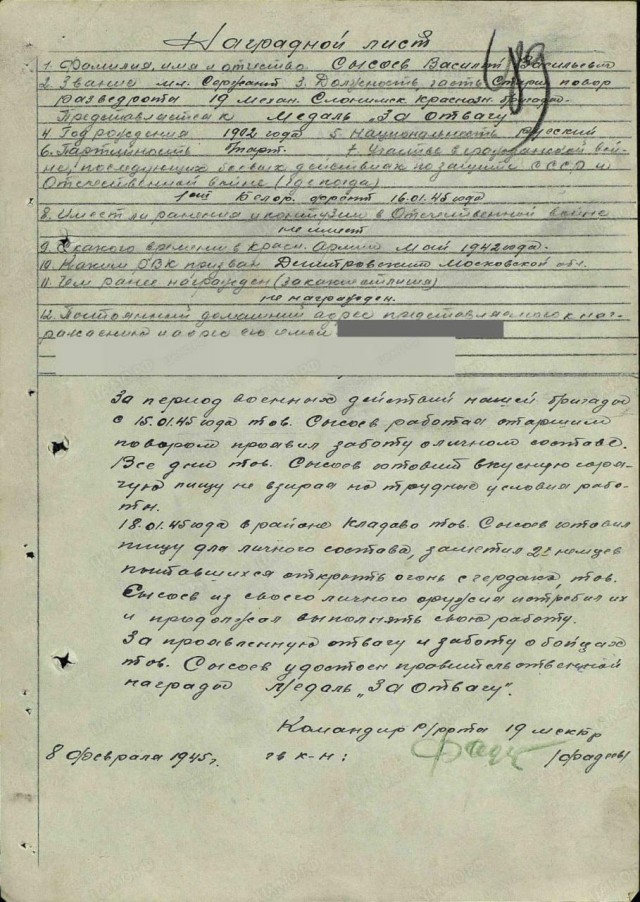 Наградной лист
1. Фамилия, имя и отчество Сысоев Василий Васильевич
2. Звание мл. Сержант 3. Должность, часть Старш. повар
разведрота 19 механ. Слонимск. Краснозн. бригады.
Представляется к Медаль "За отвагу"
4. Год рождения 1902 года 5. Национальность русский
6. Партийность 7. Участие в гражданской вой-
не, последующих боевых действиях по защите СССР и
Отечественной войне (где когда)
Белор. фронт 16.01.45 года
8. Имеет ли ранения и контузии в Отечественной войне
не имеет
9. С какого времени в Красн. Армии Май 1942 года.
10. Каким РВК призван Дмитровский Московской обл.
11. Чем ранее награжден (за какие отличия)
не награжден.
12. Постоянный домашний адрес представляемого к наг-
раждению и адрес его семьи
За период военных действий нашей бригады
с 15.01.45 года тов. Сысоев работая старшим
поваром проявил заботу о личном составе.
Все дни тов. Сысоев готовил вкусную горя-
чую пищу не взирая на трудные условия рабо-
ты.
18.01.45 года в районе Кладаво тов. Сысоев готовил
пищу для личного состава, заметил 2х немцев
пытавшихся открыть огонь с чердака, тов.
Сысоев из своего личного оружия истребил их
и продолжал выполнять свою работу.
За проявленную отвагу и заботу о бойцах
тов. Сысоев удостоен правительственной
наградой Медаль "За Отвагу".
Командир р/роты 19
8 февраля 1945 г. гв к-н: /Фадеев/